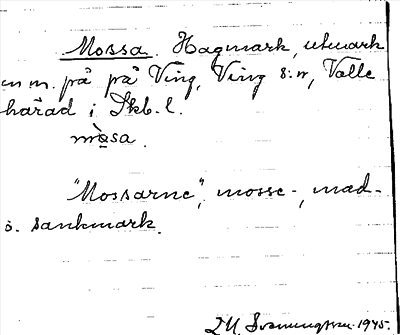 Mossa. Hagmark, utmark
m m. på på Ving, Ving s:n, Valle
härad i Skb. l.
mòsa.
"Mossarne", mosse-, mad-
o. sankmark.
1945.